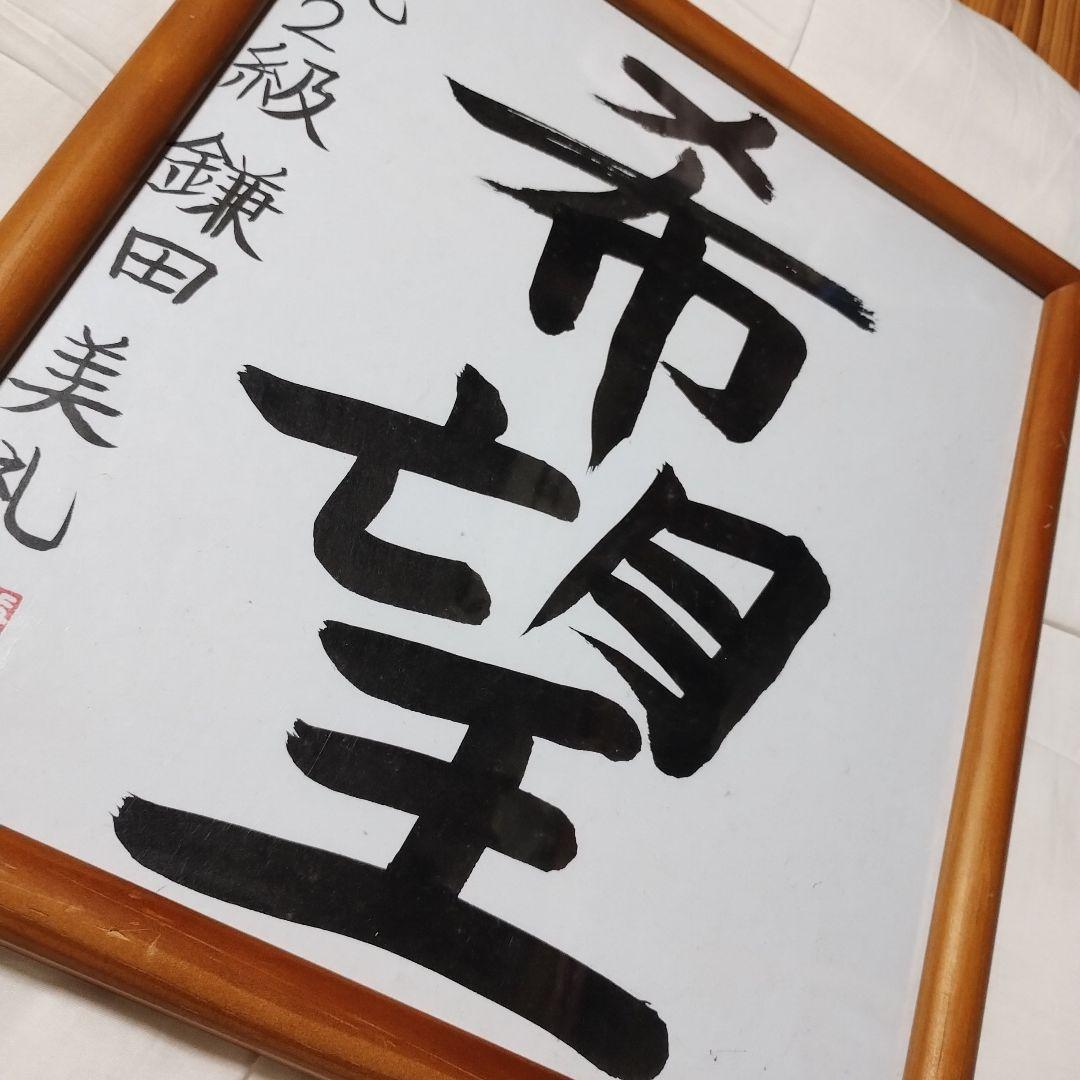 希望
2級 鎌田美礼